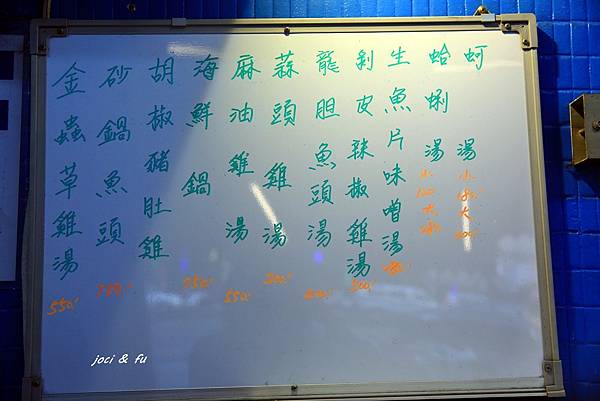 蚵湯 小180.大
蛤蜊湯 小 大
生魚片味噌湯
剝皮辣椒雞湯 500.-
龍胆魚頭湯
蒜頭雞湯 500.-
麻油雞湯 550.-
海鮮鍋 750.-
胡椒豬肚雞
砂鍋魚頭
金蟲草雞湯 550.-
joci & fu